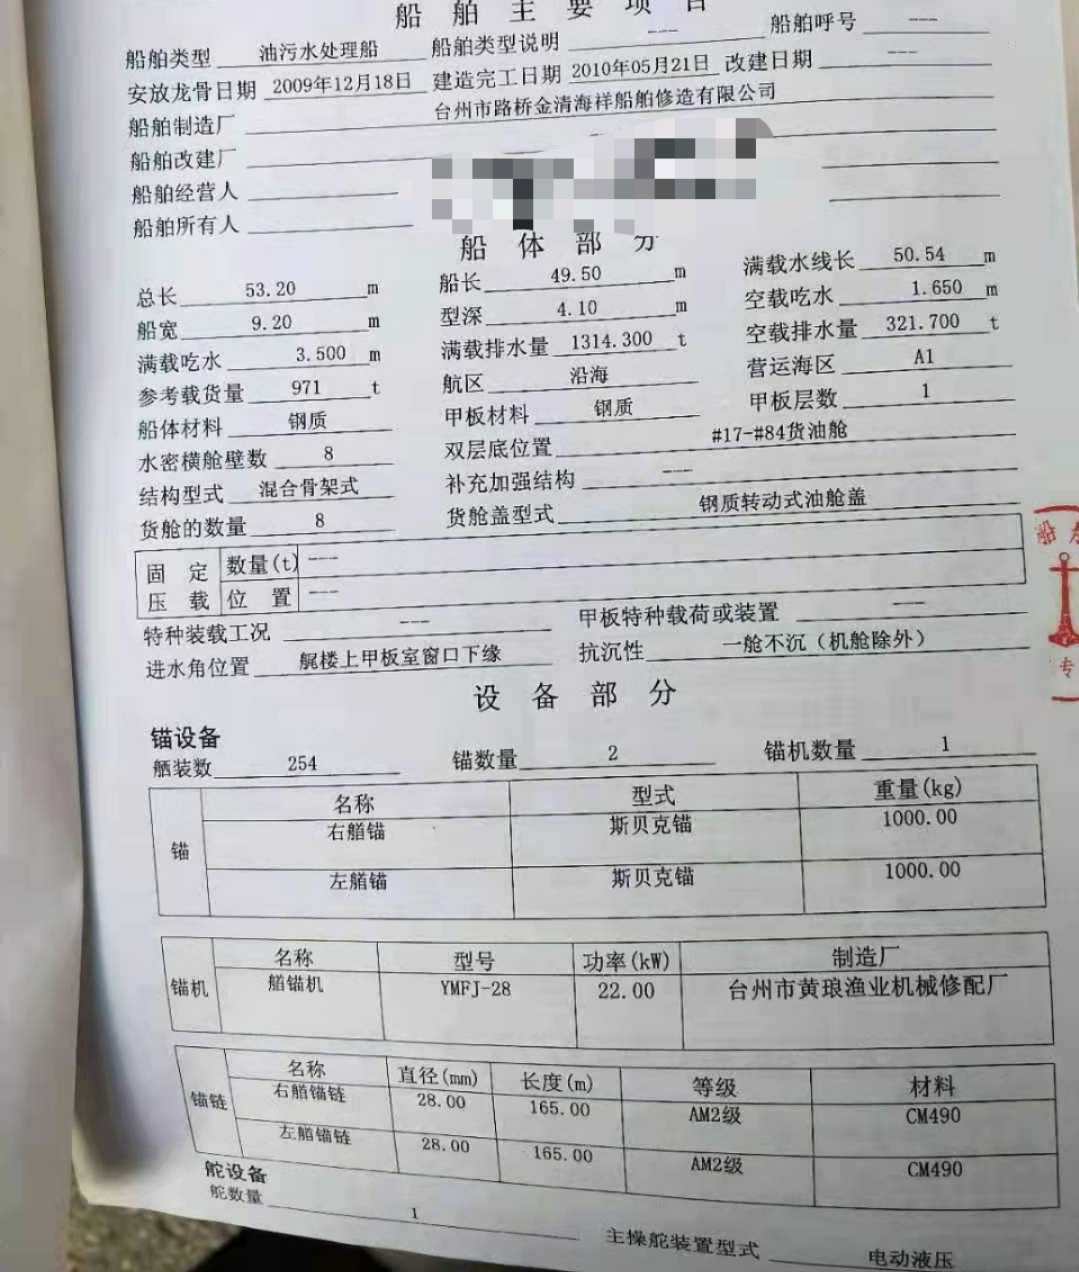 船舶主要项目
船舶类型 油污水处理船 船舶类型说明 --- 船舶呼号 ---
安放龙骨日期 2009年12月18日 建造完工日期 2010年05月21日 改建日期 ---
船舶制造厂 台州市路桥金清海祥船舶修造有限公司
船舶改建厂
船舶经营人
船舶所有人
船体部分
总长 53.20 m 船长 49.50 m 满载水线长 50.54 m
船宽 9.20 m 型深 4.10 m 空载吃水 1.650 m
满载吃水 3.500 m 满载排水量 1314.300 t 空载排水量 321.700 t
参考载货量 971 t 航区 沿海 营运海区 A1
船体材料 钢质 甲板材料 钢质 甲板层数 1
水密横舱壁数 8 双层底位置 #17-#84货油舱
结构型式 混合骨架式 补充加强结构 ---
货舱的数量 8 货舱盖型式 钢质转动式油舱盖
固定压载 数量(t) ---
位置 ---
特种装载工况 --- 甲板特种载荷或装置 ---
进水角位置 艉楼上甲板室窗口下缘 抗沉性 一舱不沉（机舱除外）
设备部分
锚设备
舾装数 254 锚数量 2 锚机数量 1
锚 名称 型式 重量(kg)
右艏锚 斯贝克锚 1000.00
左艏锚 斯贝克锚 1000.00
锚机 名称 型号 功率(kW) 制造厂
艏锚机 YMFJ-28 22.00 台州市黄琅渔业机械修配厂
锚链 名称 直径(mm) 长度(m) 等级 材料
右艏锚链 28.00 165.00 AM2级 CM490
左艏锚链 28.00 165.00 AM2级 CM490
舵设备
舵数量 1 主操舵装置型式 电动液压
船
专